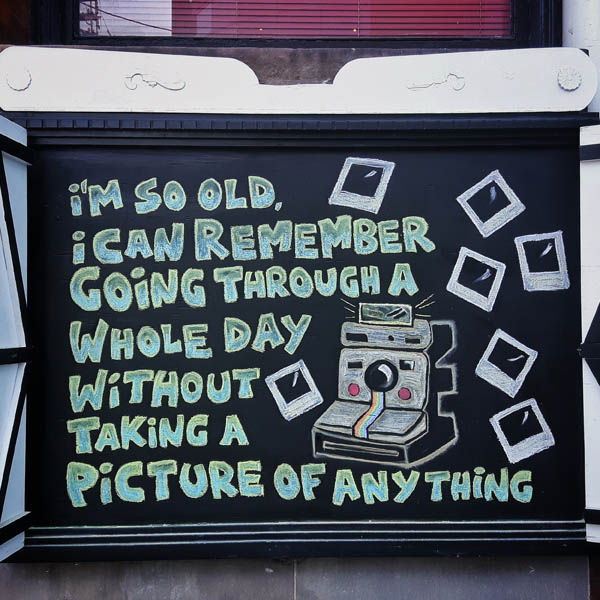 i'M SO OLD,
i CAN REMEMBER
GOiNG THROUGH A
WHOLE DAY
WiTHOUT
TAKiNG A
PiCTURE OF ANYTHiNG